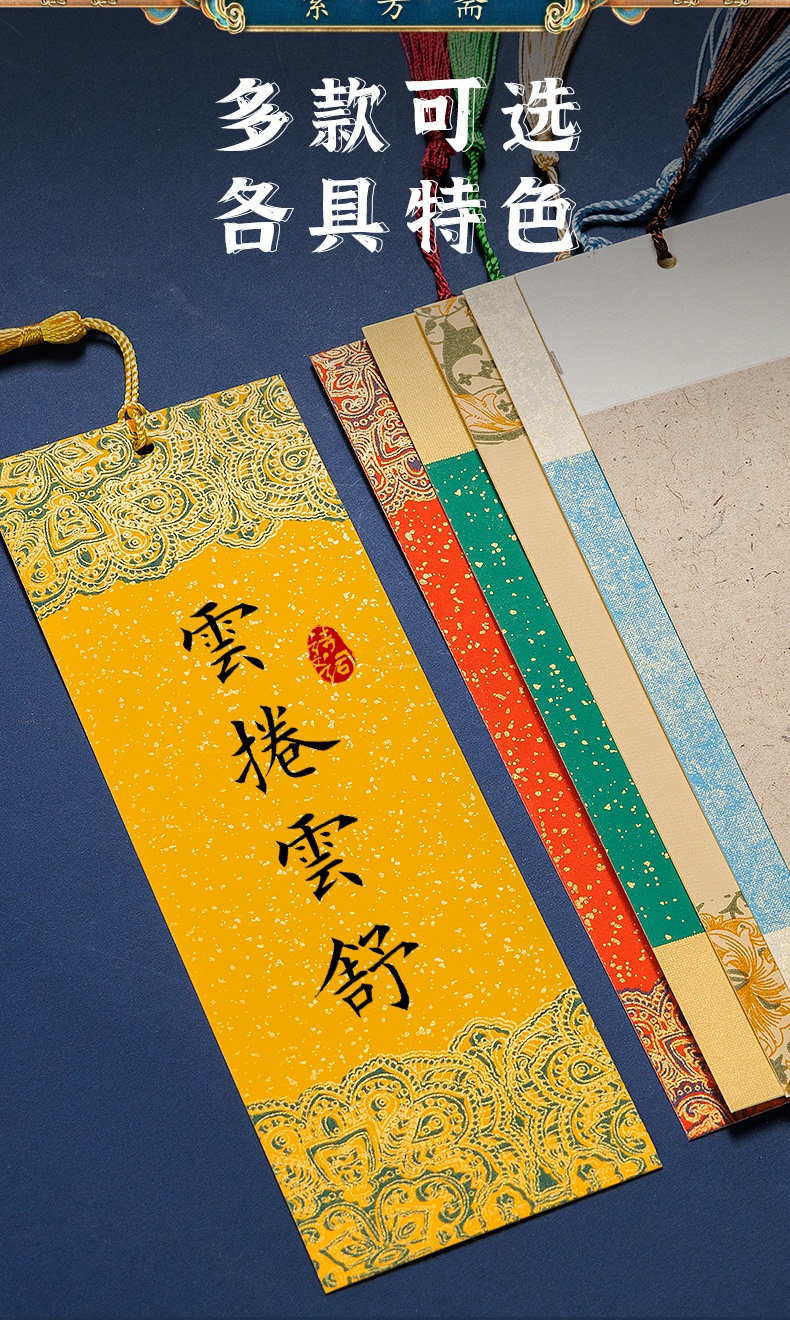 紫芳斋
多款可选
各具特色
雲捲雲舒